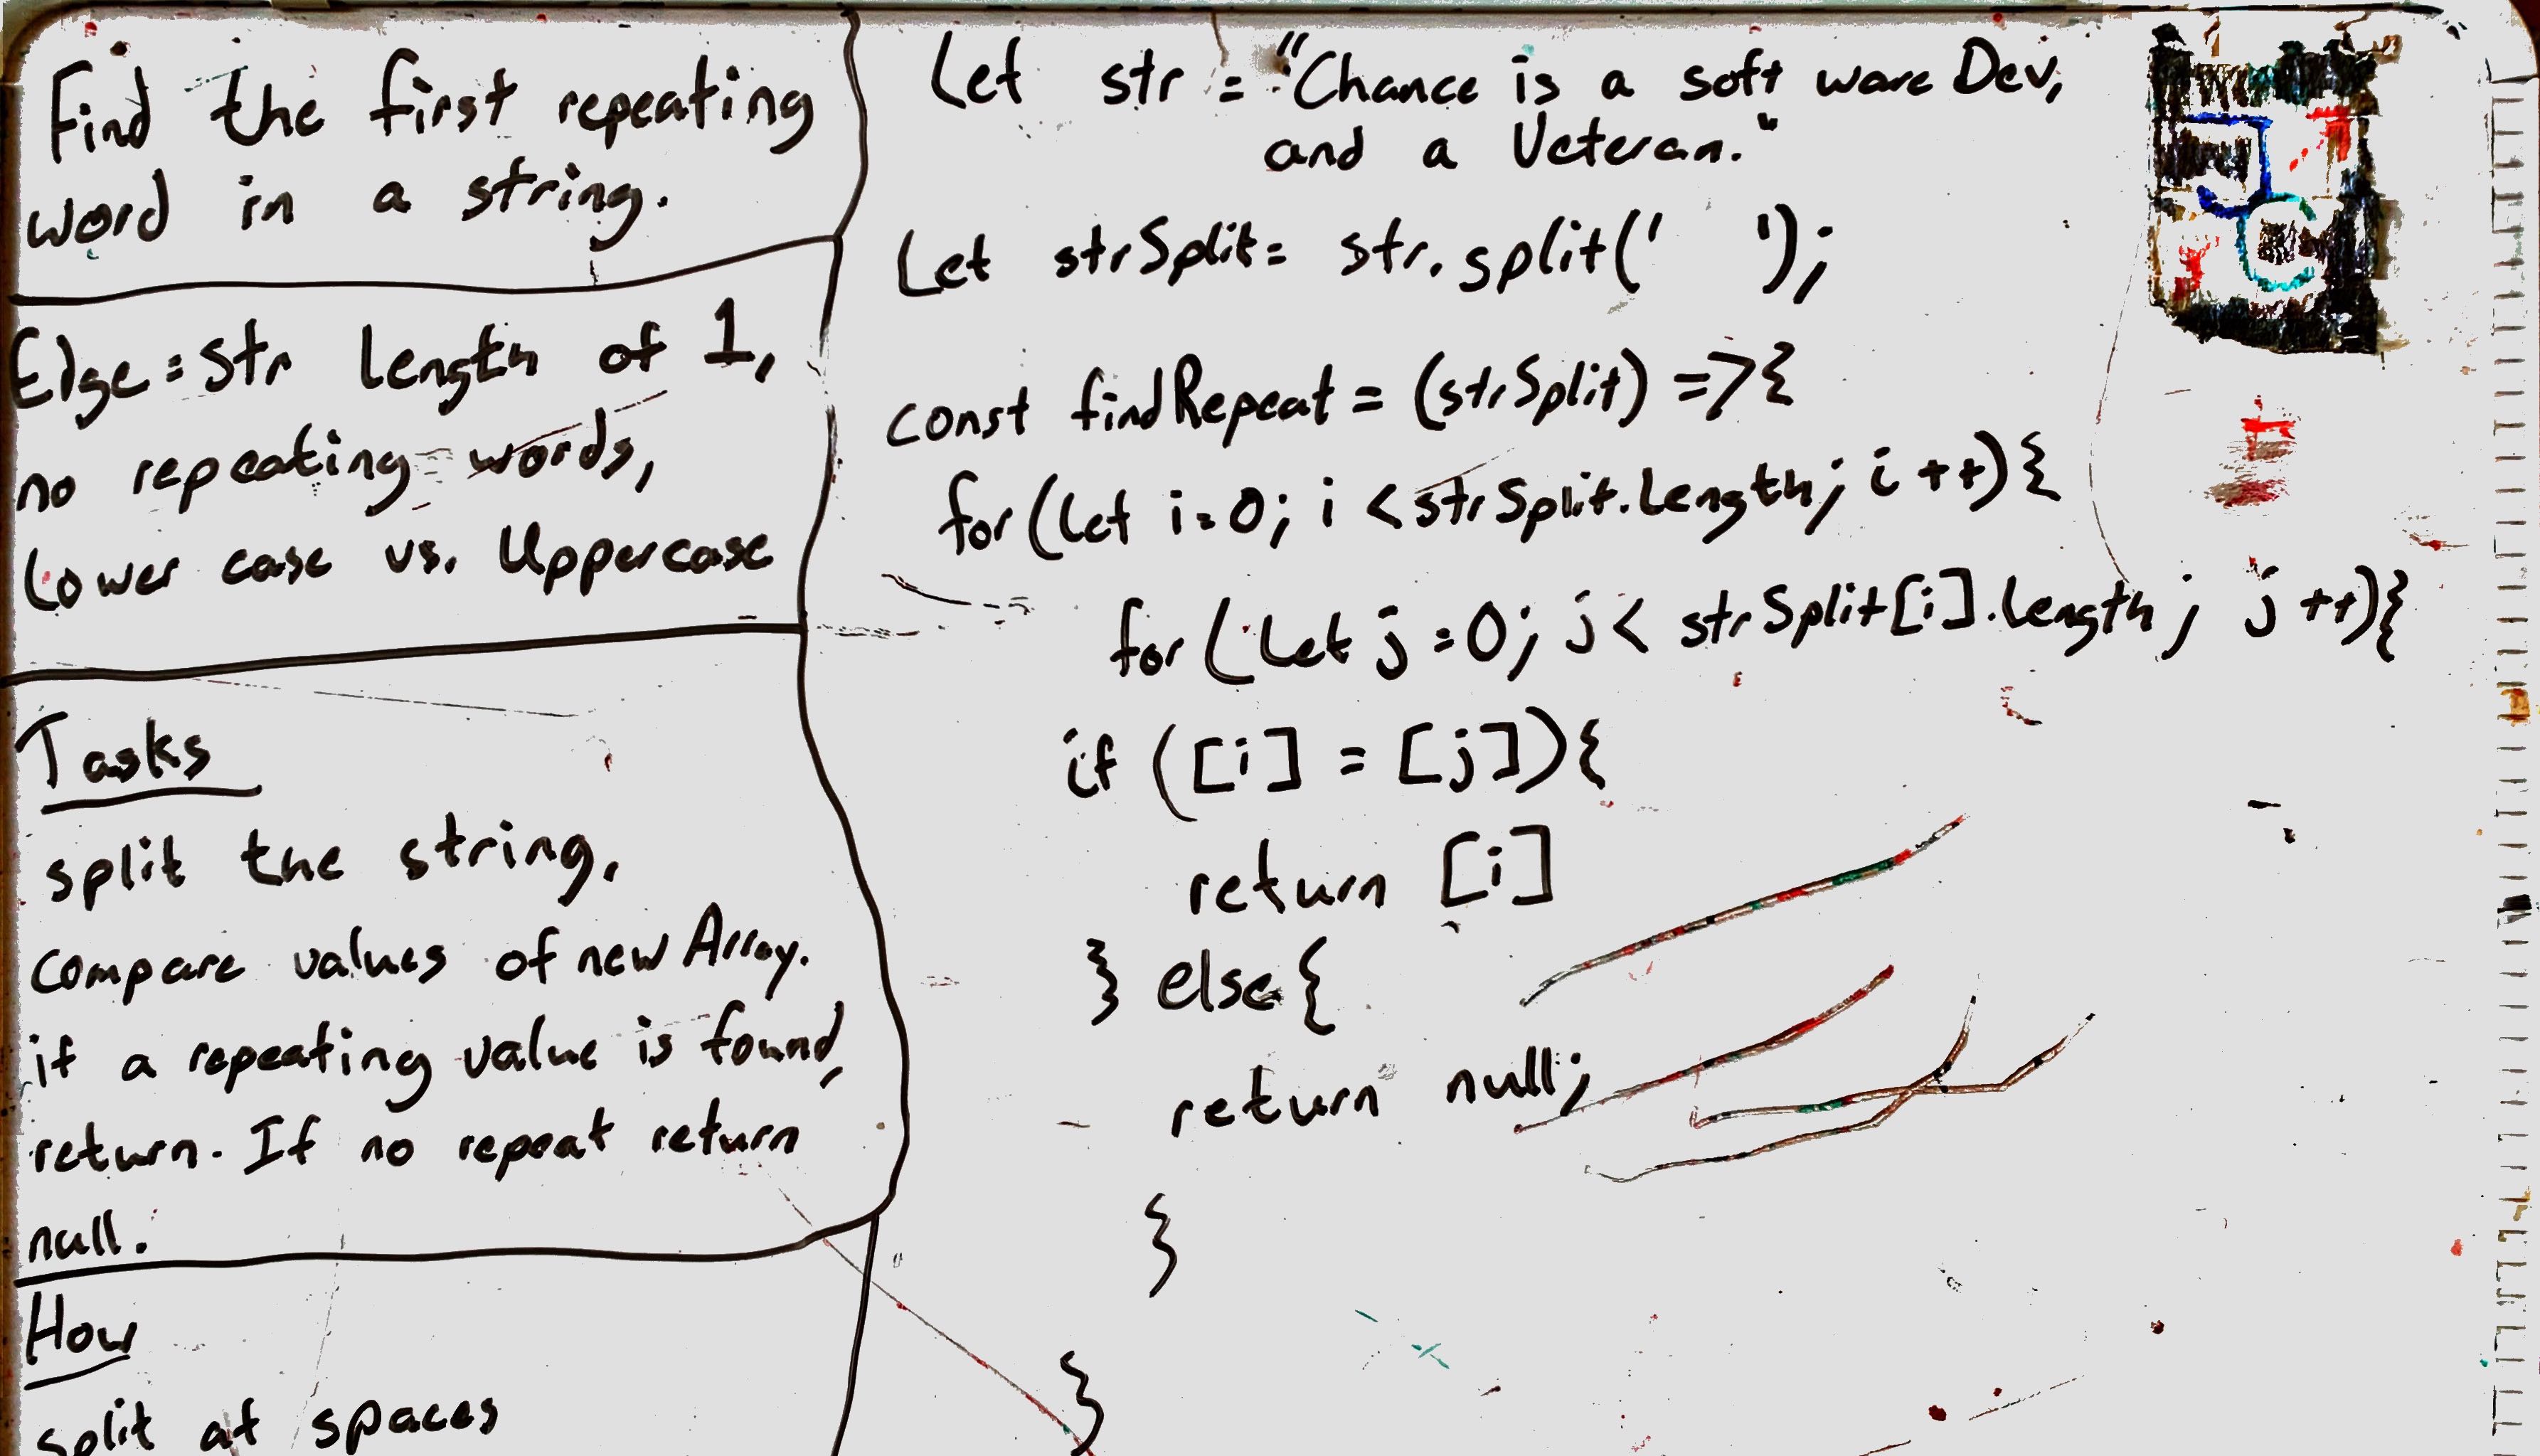 Find the first repeating
word in a string.
Edge = str length of 1,
no repeating words,
Lower case vs. Uppercase
Tasks
split the string,
compare values of new Array.
if a repeating value is found,
return. If no repeat return
null.
How
split at spaces
Let str = "Chance is a soft ware Dev,
and a Veteran."
Let strSplit = str.split(' ');
const findRepeat = (strSplit) => {
for (Let i=0; i < strSplit.length; i ++) {
for (Let j=0; j < strSplit[i].length; j ++) {
if ([i] = [j]) {
return [i]
} else {
return null;
}
}